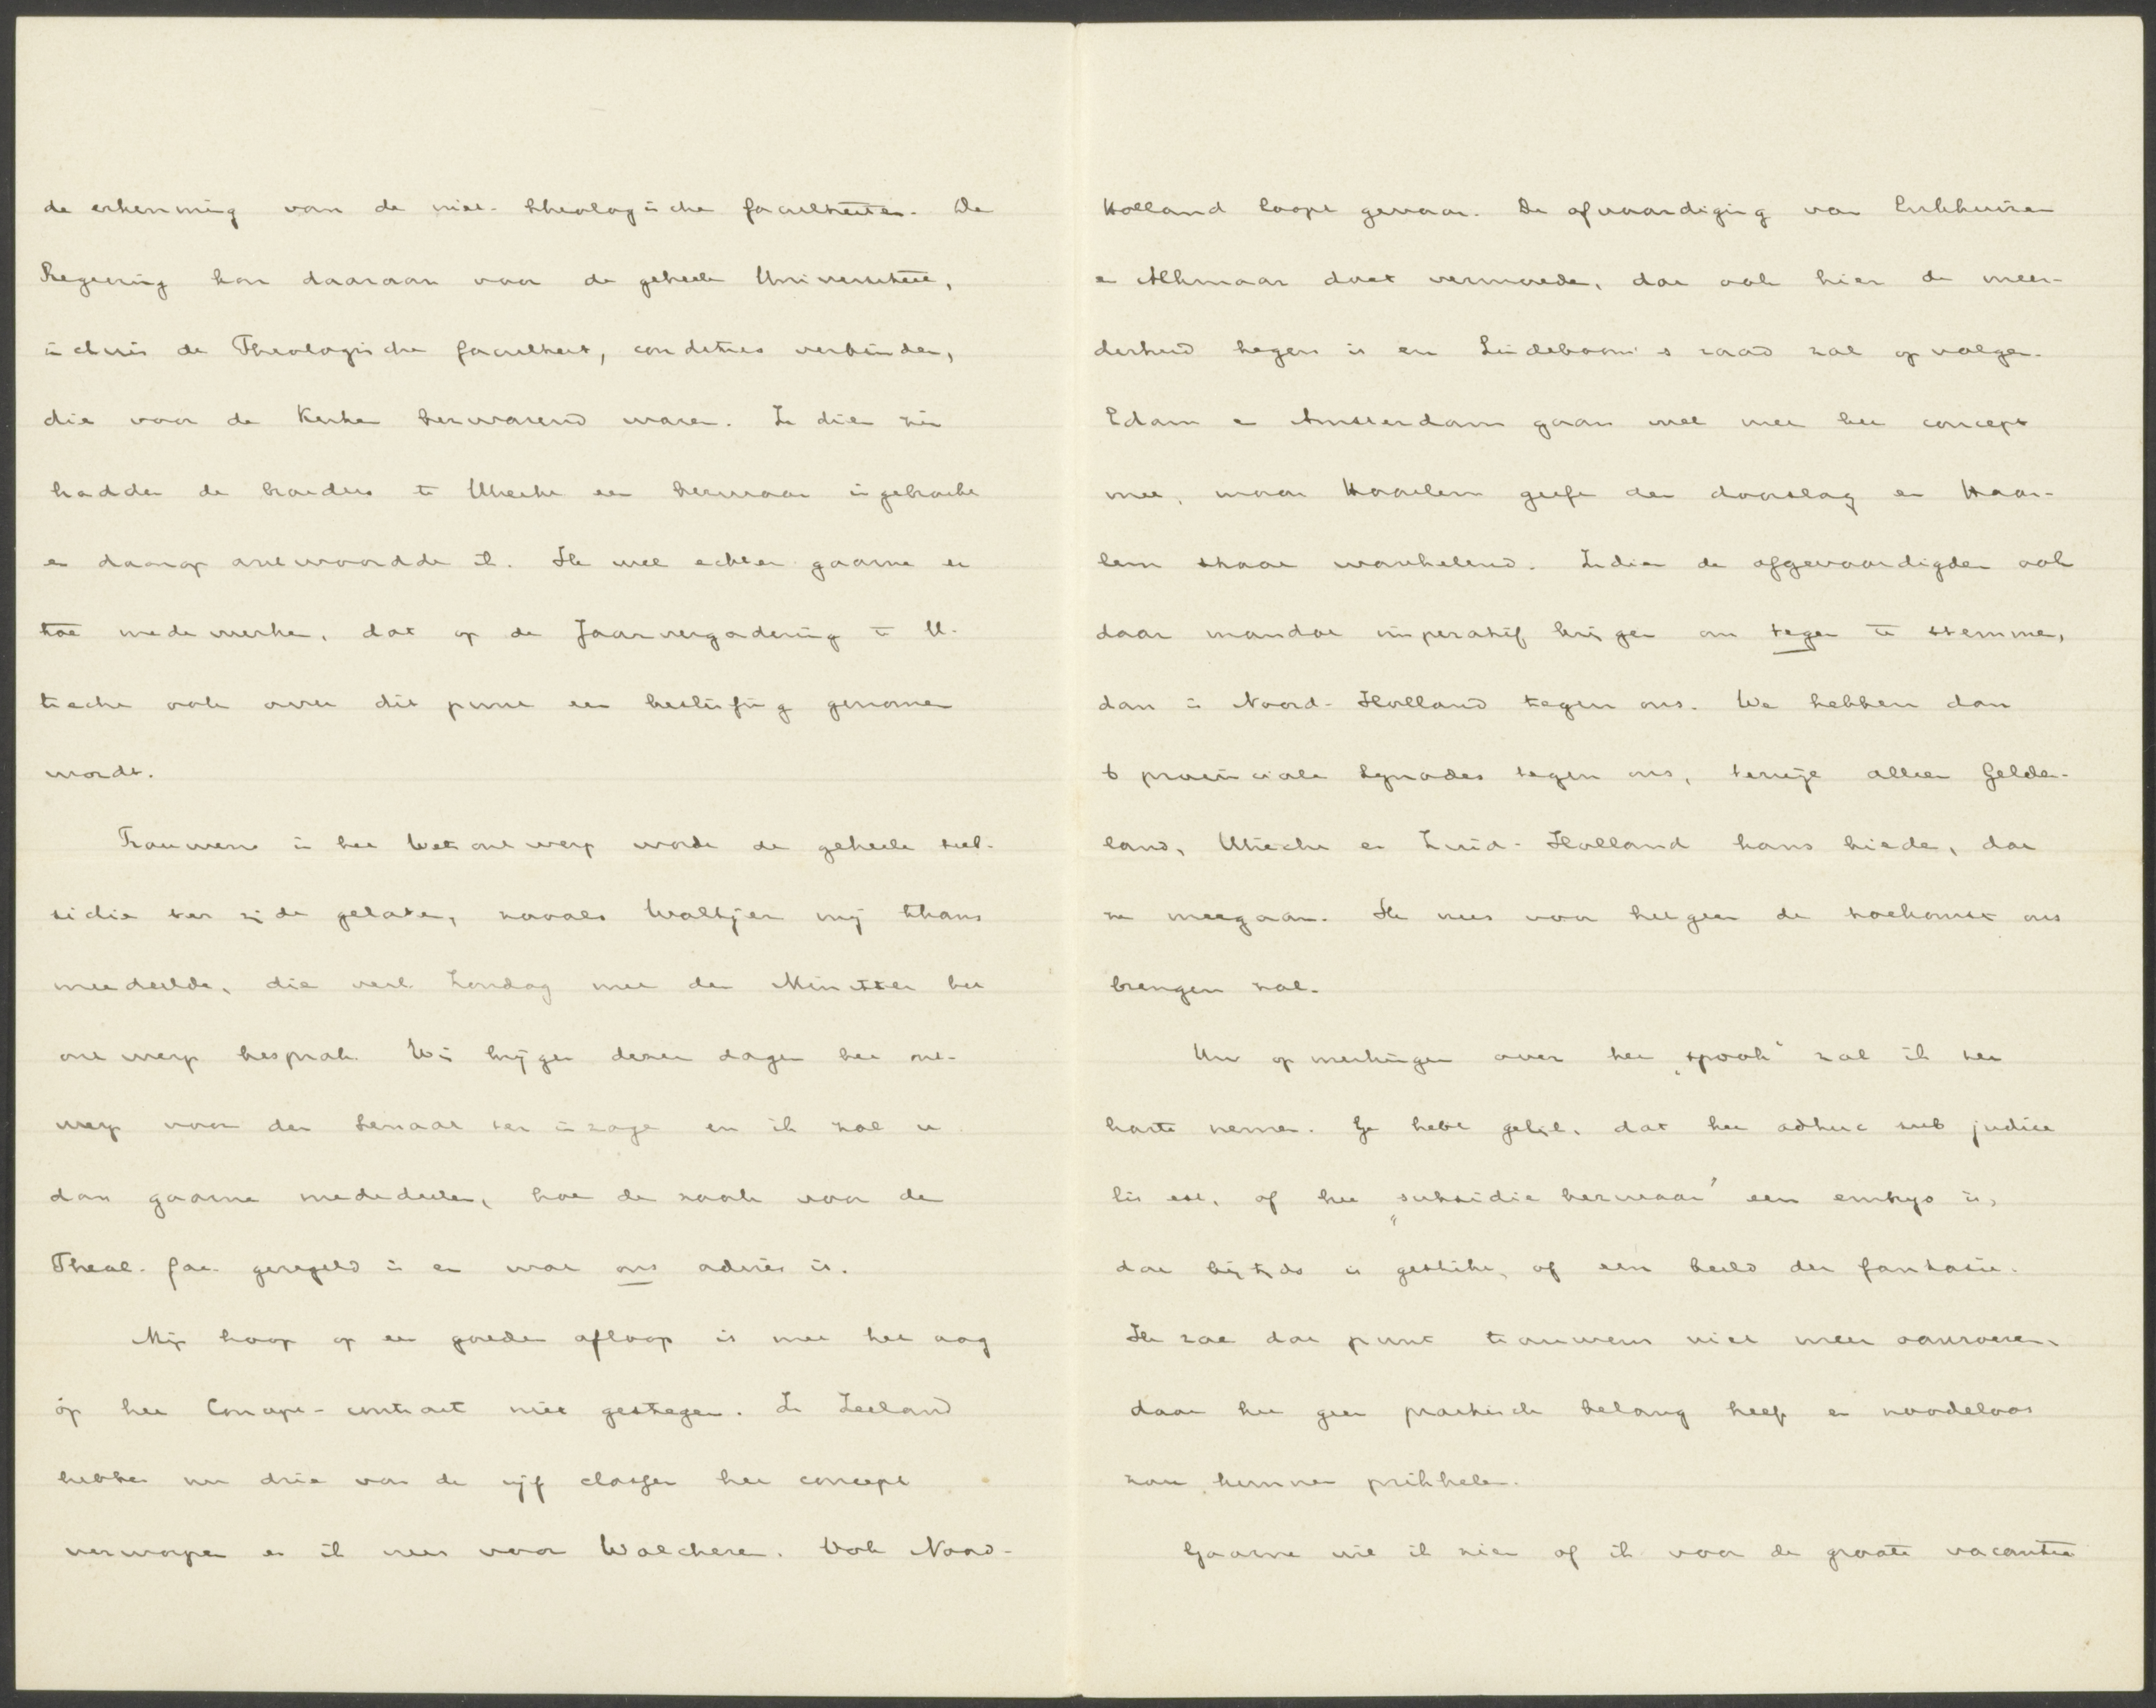 de erkenning van de niet-theologische faculteiten. De
Regeering kon daaraan voor de geheele Universiteit,
incluis de Theologische faculteit, condities verbinden,
die voor de Kerken bezwarend waren. In dien zin
hadden de broeders te Utrecht een bezwaar ingebracht
en daarop antwoordde ik. Ik wil echter gaarne er
toe medewerken, dat op de Jaarvergadering te U-
trecht ook over dit punt een beslissing genomen
wordt.
Trouwens in het Wetsontwerp wordt de geheele sub-
sidie ter zijde gelaten, zooals Woltjer mij thans
meedeelde, die verl. Zondag met den Minister het
ontwerp besprak. Wij krijgen dezer dagen het ont-
werp voor den Senaat ter inzage en ik zal u
dan gaarne mededeelen, hoe de zaak voor de
Theol. fac. geregeld is en wat ons advies is.
Mijn hoop op een goeden afloop is met het oog
op het Concept-contract niet gestegen. In Zeeland
hebben nu drie van de vijf classen het concept
verworpen en ik vrees voor Walcheren. Ook Noord-
Holland loopt gevaar. De afvaardiging van Enkhuizen
en Alkmaar doet vermoeden, dat ook hier de meer-
derheid tegen is en Lindeboom's raad zal opvolgen.
Edam en Amsterdam gaan wel met het concept
mee, maar Haarlem geeft den doorslag en Haar-
lem staat wankelend. Indien de afgevaardigden ook
daar mandat imperatif krijgen om tegen te stemmen,
dan is Noord-Holland tegen ons. We hebben dan
6 provinciale Synodes tegen ons, terwijl alleen Gelder-
land, Utrecht en Zuid-Holland kans bieden, dat
ze meegaan. Ik vrees voor hetgeen de toekomst ons
brengen zal.
Uw opmerkingen over het „spook" zal ik ter
harte nemen. Ge hebt gelijk, dat het adhuc sub judice
lis est, of het „subsidie bezwaar" een embryo is,
dat bijtijds is gestikt, of een beeld der fantasie.
Ik zal dat punt trouwens niet meer aanroeren,
daar het geen practisch belang heeft en noodeloos
zou kunnen prikkelen.
Gaarne wil ik zien of ik voor de groote vacantie